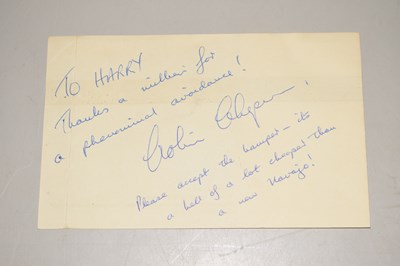 TO HARRY
Thanks a million for
a phenominal avoidance!
Colin Chapman
Please accept the hamper - its
a hell of a lot cheaper than
a new Navajo!